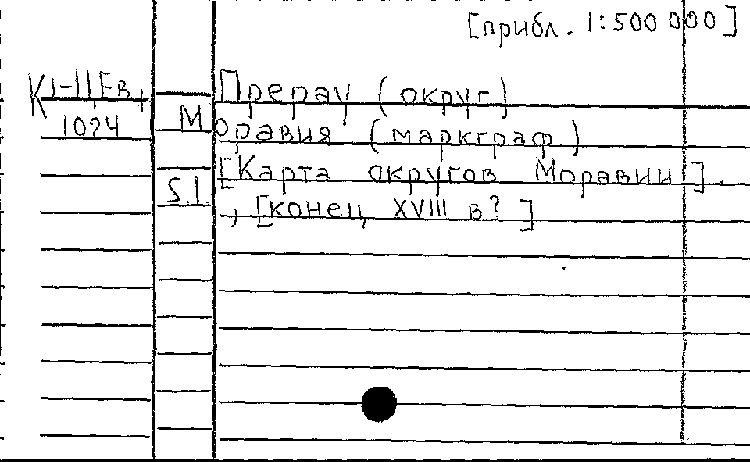 [прибл. 1:500 000]
К 1-11Ев, Прерау (округ)
1024 М оравия (маркграф.)
[Карта округов Моравии].
51 -, [конец XVIII в?]